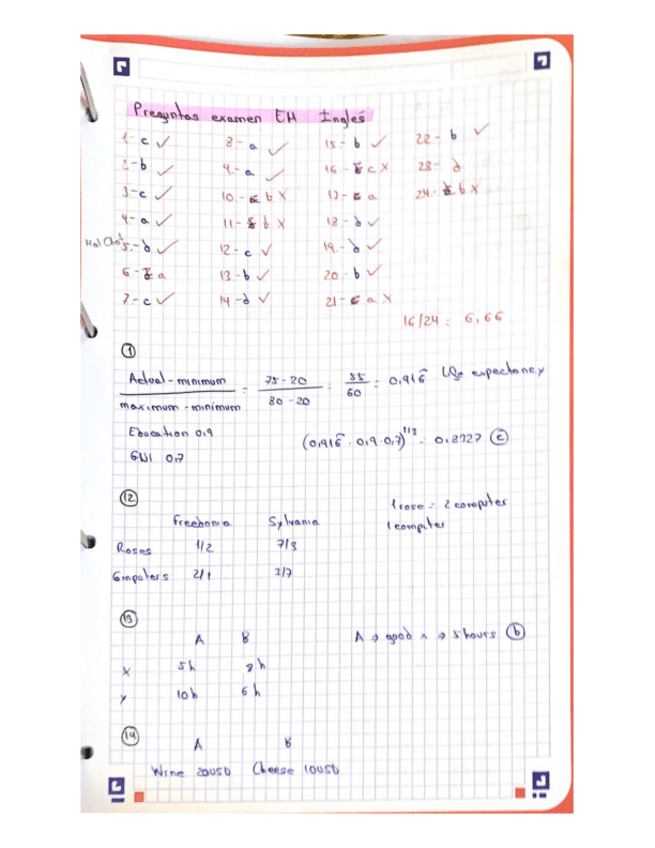 Preguntas examen EH Ingles
1- c ✓ 8- a ✓ 15- b ✓ 22- b ✓
2- b ✓ 9- a ✓ 16- c X 23- d
3- c ✓ 10- b X 17- a 24- b X
4- a ✓ 11- b X 18- d ✓
5.- d ✓ 12- c ✓ 19.- d ✓
6- a 13- b ✓ 20- b ✓
7- c ✓ 14- d ✓ 21- a X
16/24 = 6,66
①
Actual - minimum / maximum - minimum = 75-20 / 80-20 = 55/60 = 0,916 life expectancy
Education 0,9
GNI 0,7 (0,916 · 0,9 · 0,7)^1/3 = 0,8327 ⓒ
⑫
1 rose = 2 computer
Freedonia Sylvania 1 computer
Roses 1/2 7/3
Computers 2/1 3/7
⑬
A B A → good x → 5 hours ⓑ
x 5h 8h
y 10h 6h
⑭
A B
Wine 20USD Cheese 10USD